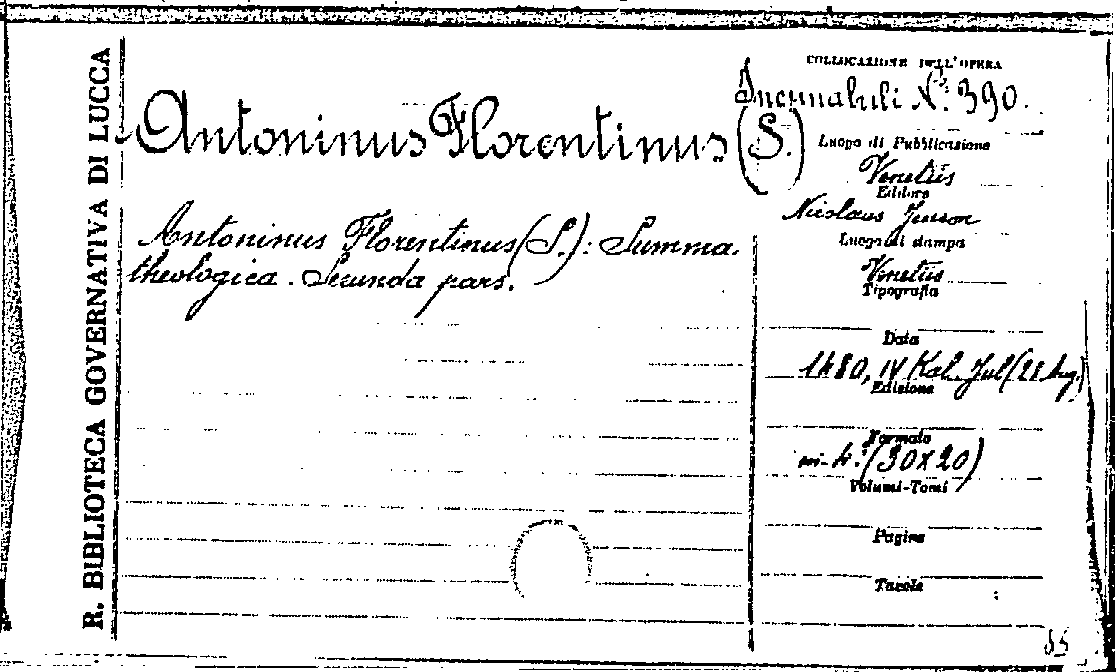 R. BIBLIOTECA GOVERNATIVA DI LUCCA
Antoninus Florentinus (S.)
Antoninus Florentinus (S.): Summa
theologica. Secunda pars.
COLLOCAZIONE DELL'OPERA
Incunabuli N.º 390.
Luogo di Pubblicazione
Venetiis
Editore
Nicolaus Jenson
Luogo di stampa
Venetiis
Tipografia
Data
1480, IV Kal. Jul (28 Aug.)
Edizione
Formato
in-4.º (30x20)
Volumi-Tomi
Pagine
Tavole